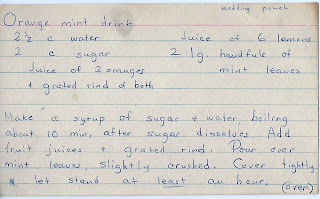 wedding punch
Orange mint drink
2½ c water Juice of 6 lemons
2 c sugar 2 lg. handfuls of
Juice of 2 oranges mint leaves
& grated rind of both
Make a syrup of sugar & water, boiling
about 10 min, after sugar dissolves. Add
fruit juices & grated rind. Pour over
mint leaves, slightly crushed. Cover tightly
& let stand at least an hour. (over)